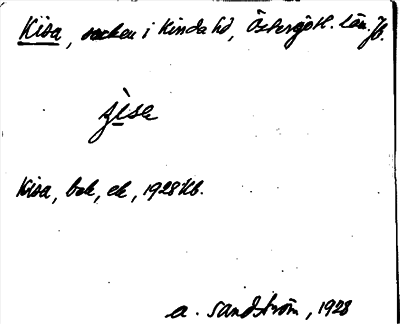 Kisa, socken i Kinda hd, Östergötl. län.
jisa
Kisa, bok, ek, 1928 Kb.
A. Sandström, 1928